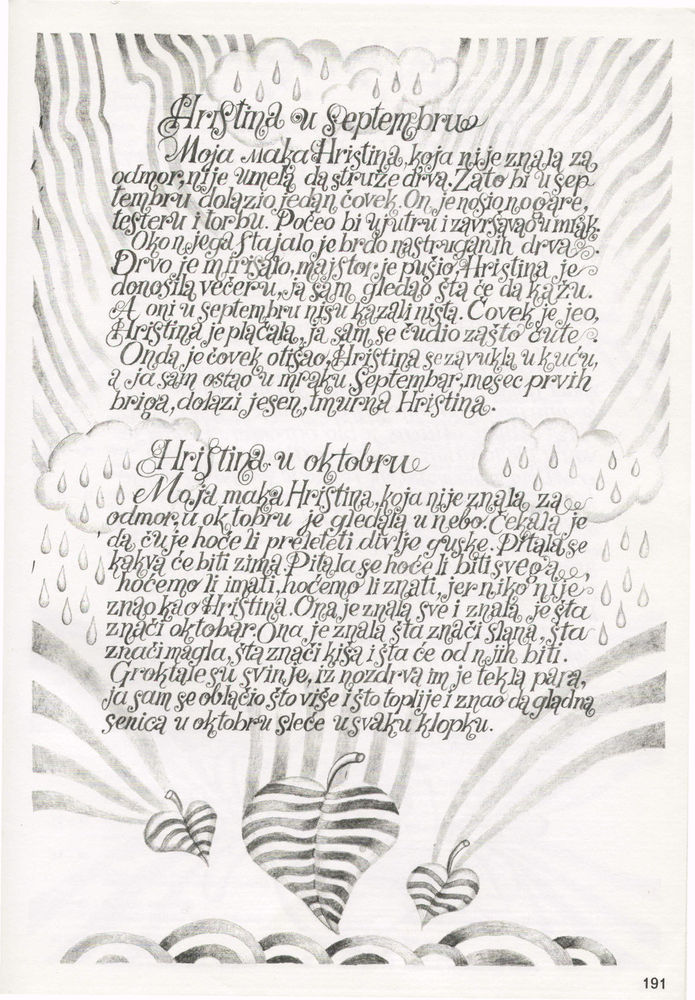 Hristina u septembru
Moja maka Hristina, koja nije znala za
odmor, nije umela da struže drva. Zato bi u sep-
tembru dolazio jedan čovek. On je nosio nogare,
testeru i torbu. Počeo bi ujutru i završavao u mrak.
Oko njega stajalo je brdo nastruganih drva.
Drvo je mirisalo, majstor je pušio, Hristina je
donosila večeru, ja sam gledao šta će da kažu.
A oni u septembru nisu kazali ništa. Čovek je jeo,
Hristina je plačala, ja sam se čudio zašto ćute.
Onda je čovek otišao, Hristina se zavukla u kuću,
a ja sam ostao u mraku. Septembar, mesec prvih
briga, dolazi jesen, tmurna Hristina.
Hristina u oktobru
Moja maka Hristina, koja nije znala za
odmor, u oktobru je gledala u nebo. Čekala je
da čuje hoće li preleteti divlje guske. Pitala se
kakva će biti zima. Pitala se hoće li biti svega,
hoćemo li imati, hoćemo li znati, jer niko nije
znao kao Hristina. Ona je znala sve i znala je šta
znači oktobar. Ona je znala šta znači slana, šta
znači magla, šta znači kiša i šta će od njih biti.
Groktale su svinje, iz nozdrva im je tekla para,
ja sam se oblačio što više i što toplije i znao da gladna
senica u oktobru sleće u svaku klopku.
191